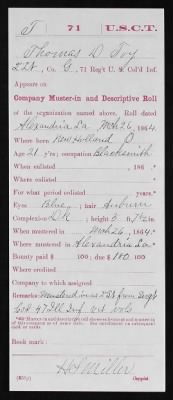 T 71 U.S.C.T.
Thomas D Foy
2 Lt, Co. G, 71 Reg't U. S. Col'd Inf.
Appears on
Company Muster-in and Descriptive Roll
of the organization named above. Roll dated
Alexandria La Mch 26, 1864
Where born New Holland O
Age 21 y'rs; occupation Blacksmith
When enlisted , 186 .
Where enlisted
For what period enlisted years.
Eyes Blue, ; hair Auburn
Complexion Dk ; height 5 ft. 7½ in.
When mustered in Mch 26, 1864.
Where mustered in Alexandria La
Bounty paid $ 100 ; due $ 100
Company to which assigned
Remarks: Mustered in as 2 Lt from Sergt
Co 47 Ill Inf Vet Vols
Book mark:
H S Miller
Copyist.